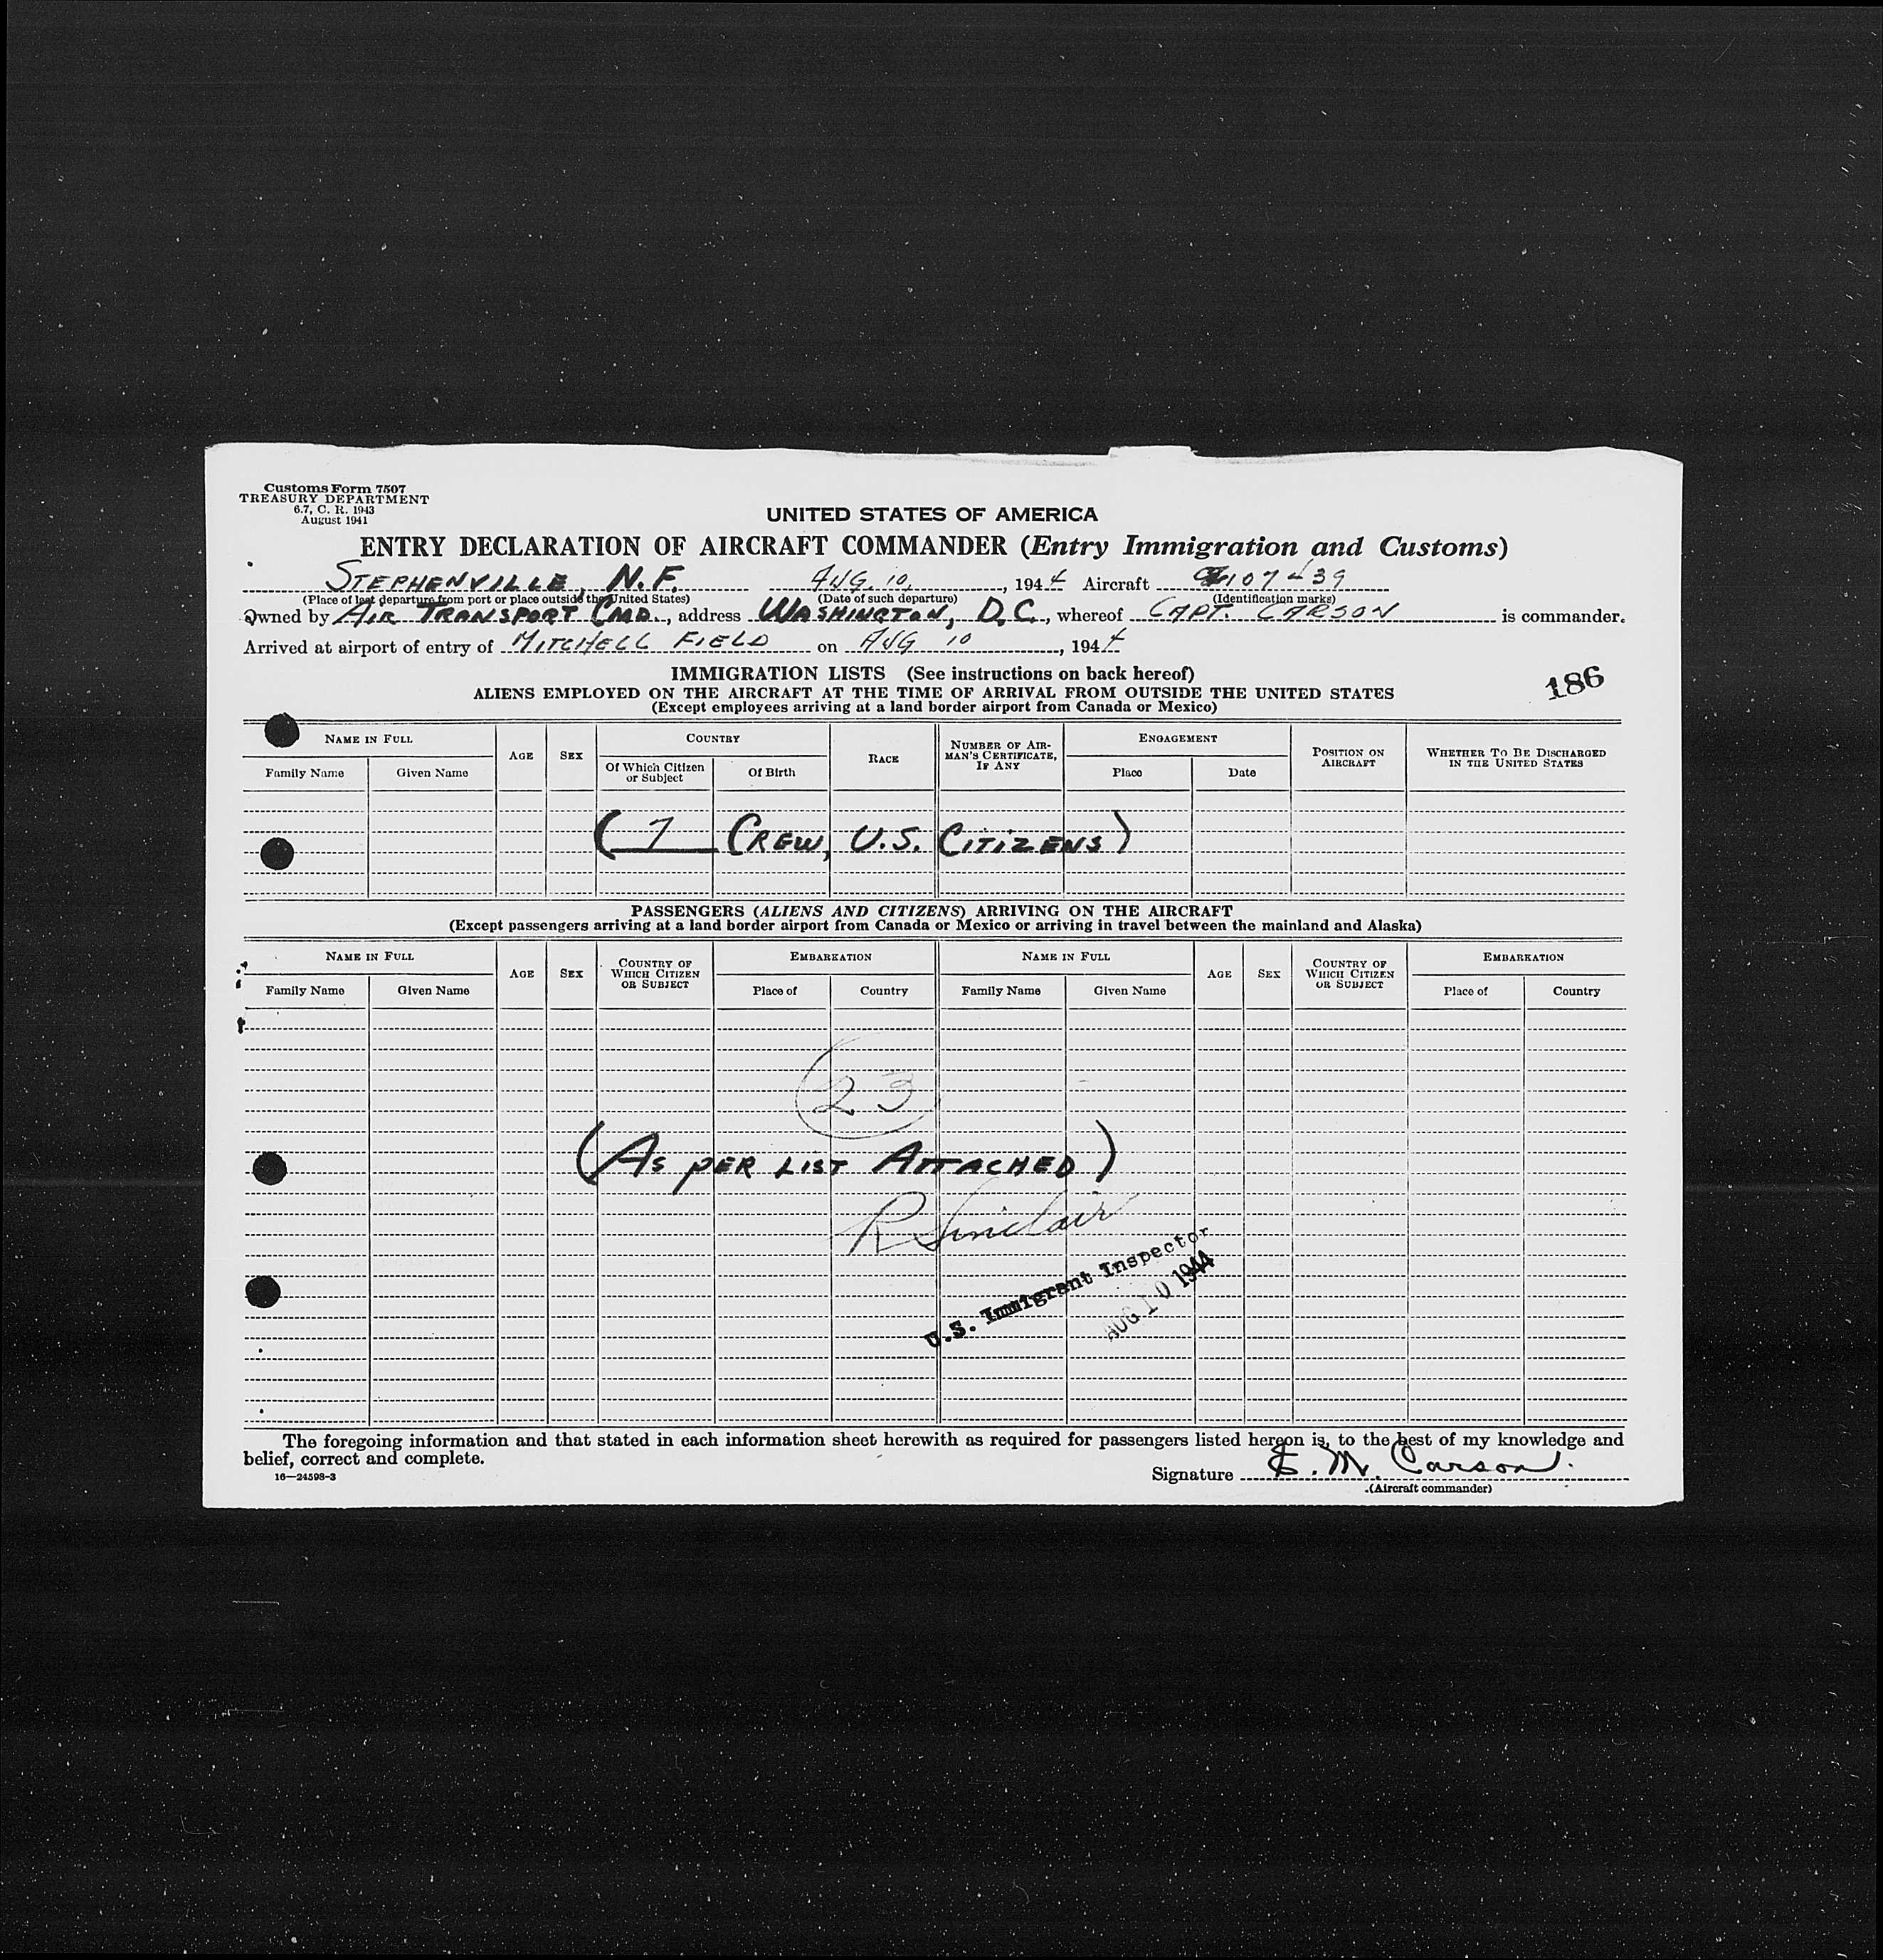 Customs Form 7507
TREASURY DEPARTMENT
6.7, C. R. 1943
August 1941
UNITED STATES OF AMERICA
ENTRY DECLARATION OF AIRCRAFT COMMANDER (Entry Immigration and Customs)
STEPHENVILLE, N.F. AUG. 10, , 1944 Aircraft 107439
(Place of last departure from port or place outside the United States) (Date of such departure) (Identification marks)
Owned by AIR TRANSPORT CMD., address WASHINGTON, D.C., whereof CAPT. CARSON is commander.
Arrived at airport of entry of MITCHELL FIELD on AUG 10 , 1944
186
IMMIGRATION LISTS (See instructions on back hereof)
ALIENS EMPLOYED ON THE AIRCRAFT AT THE TIME OF ARRIVAL FROM OUTSIDE THE UNITED STATES
(Except employees arriving at a land border airport from Canada or Mexico)
NAME IN FULL AGE SEX COUNTRY RACE NUMBER OF AIRMAN'S CERTIFICATE, IF ANY ENGAGEMENT POSITION ON AIRCRAFT WHETHER TO BE DISCHARGED IN THE UNITED STATES
Family Name Given Name Of Which Citizen or Subject Of Birth Place Date
( 7 CREW, U.S. CITIZENS)
PASSENGERS (ALIENS AND CITIZENS) ARRIVING ON THE AIRCRAFT
(Except passengers arriving at a land border airport from Canada or Mexico or arriving in travel between the mainland and Alaska)
NAME IN FULL AGE SEX COUNTRY OF WHICH CITIZEN OR SUBJECT EMBARKATION NAME IN FULL AGE SEX COUNTRY OF WHICH CITIZEN OR SUBJECT EMBARKATION
Family Name Given Name Place of Country Family Name Given Name Place of Country
23
(AS PER LIST ATTACHED)
R Sinclair
U.S. Immigrant Inspector
AUG 10 1944
The foregoing information and that stated in each information sheet herewith as required for passengers listed hereon is, to the best of my knowledge and
belief, correct and complete.
16—24598-3
Signature E. M. Carson.
(Aircraft commander)